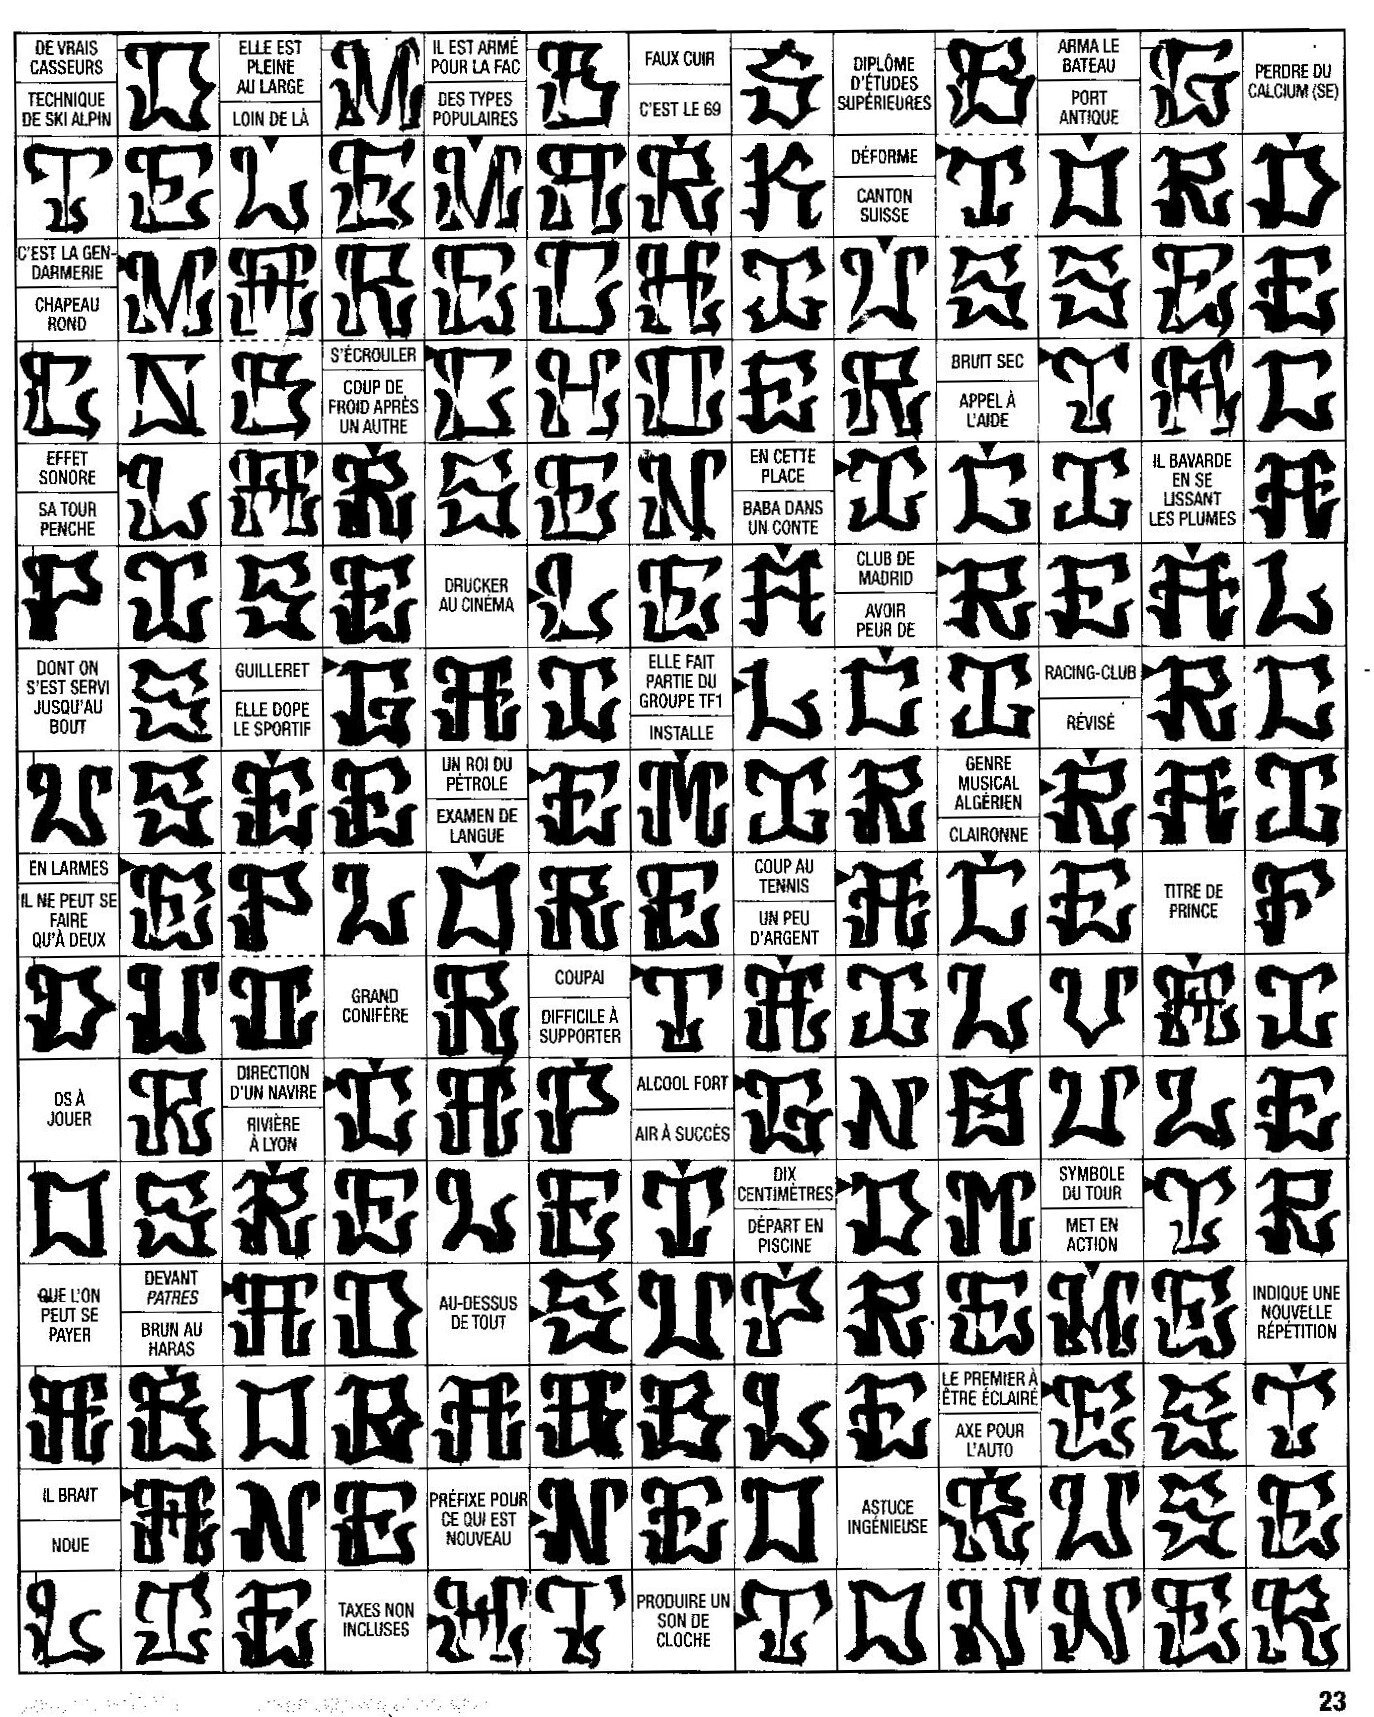 DE VRAIS
CASSEURS
TECHNIQUE
DE SKI ALPIN
D
ELLE EST
PLEINE
AU LARGE
LOIN DE LÀ
M
IL EST ARMÉ
POUR LA FAC
DES TYPES
POPULAIRES
B
FAUX CUIR
C'EST LE 69
S
DIPLÔME
D'ÉTUDES
SUPÉRIEURES
B
ARMA LE
BATEAU
PORT
ANTIQUE
G
PERDRE DU
CALCIUM (SE)
T E L E M A R K
DÉFORME
CANTON
SUISSE
T O R D
C'EST LA GEN-
DARMERIE
CHAPEAU
ROND
M A R E C H I U S S E E
C N B
S'ÉCROULER
COUP DE
FROID APRÈS
UN AUTRE
C H O E R
BRUIT SEC
APPEL À
L'AIDE
T A C
EFFET
SONORE
SA TOUR
PENCHE
L A R S E N
EN CETTE
PLACE
BABA DANS
UN CONTE
I C I
IL BAVARDE
EN SE
LISSANT
LES PLUMES
A
P I S E
DRUCKER
AU CINÉMA
L E A
CLUB DE
MADRID
AVOIR
PEUR DE
R E A L
DONT ON
S'EST SERVI
JUSQU'AU
BOUT
S
GUILLERET
ELLE DOPE
LE SPORTIF
G A I
ELLE FAIT
PARTIE DU
GROUPE TF1
INSTALLE
L C I
RACING-CLUB
RÉVISÉ
R C
U S E E
UN ROI DU
PÉTROLE
EXAMEN DE
LANGUE
E M I R
GENRE
MUSICAL
ALGÉRIEN
CLAIRONNE
R A I
EN LARMES
IL NE PEUT SE
FAIRE
QU'À DEUX
E P L O R E
COUP AU
TENNIS
UN PEU
D'ARGENT
A C E
TITRE DE
PRINCE
F
D U O
GRAND
CONIFÈRE
R
COUPAI
DIFFICILE À
SUPPORTER
T A I L V A I
OS À
JOUER
K
DIRECTION
D'UN NAVIRE
RIVIÈRE
À LYON
C A P
ALCOOL FORT
AIR À SUCCÈS
G N A U L E
O S R E L E T
DIX
CENTIMÈTRES
DÉPART EN
PISCINE
D M
SYMBOLE
DU TOUR
MET EN
ACTION
T R
QUE L'ON
PEUT SE
PAYER
DEVANT
PATRES
BRUN AU
HARAS
A D
AU-DESSUS
DE TOUT
S U P R E M E
INDIQUE UNE
NOUVELLE
RÉPÉTITION
A B O R D A B L E
LE PREMIER À
ÊTRE ÉCLAIRÉ
AXE POUR
L'AUTO
E S T
IL BRAIT
NOUE
A N E
PRÉFIXE POUR
CE QUI EST
NOUVEAU
N E O
ASTUCE
INGÉNIEUSE
R U S E
L I E
TAXES NON
INCLUSES
H T
PRODUIRE UN
SON DE
CLOCHE
T O N N E R
23